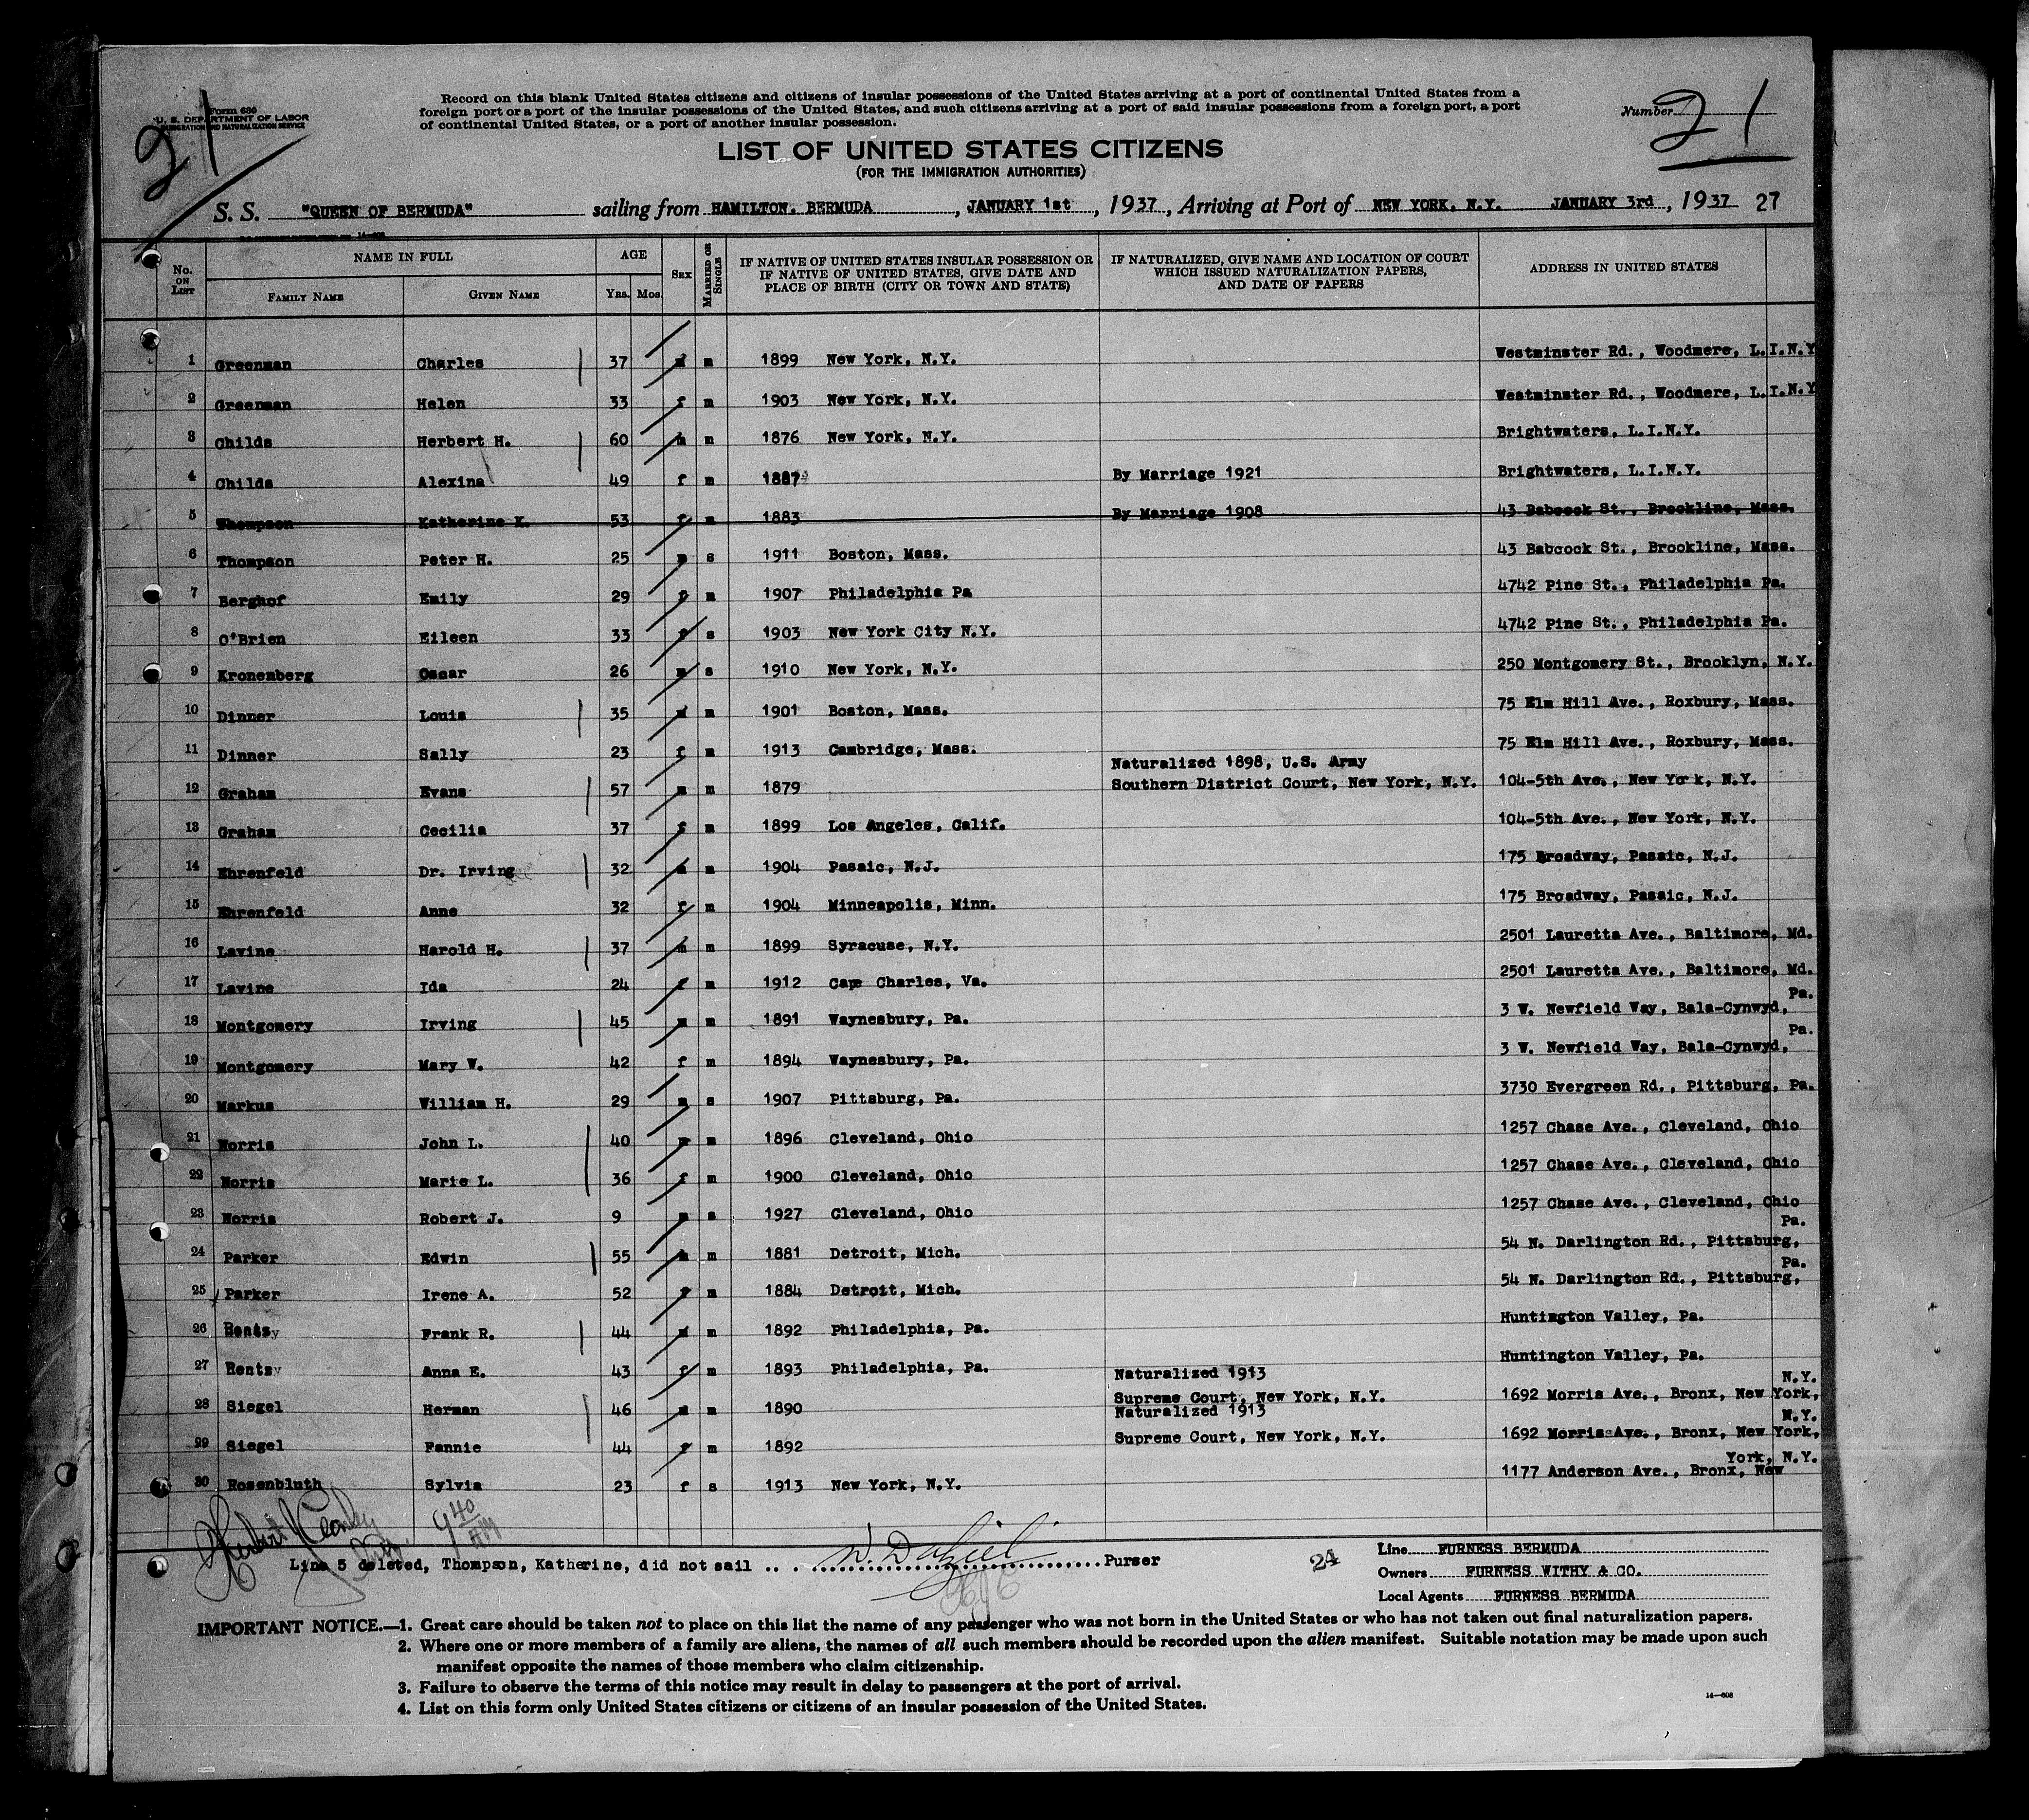 Form 630
U. S. DEPARTMENT OF LABOR
IMMIGRATION AND NATURALIZATION SERVICE
21
Record on this blank United States citizens and citizens of insular possessions of the United States arriving at a port of continental United States from a
foreign port or a port of the insular possessions of the United States, and such citizens arriving at a port of said insular possessions from a foreign port, a port
of continental United States, or a port of another insular possession.
Number 21
LIST OF UNITED STATES CITIZENS
(FOR THE IMMIGRATION AUTHORITIES)
S. S. "QUEEN OF BERMUDA" sailing from HAMILTON, BERMUDA, JANUARY 1st, 1937, Arriving at Port of NEW YORK, N.Y. JANUARY 3rd, 1937 27
No. ON LIST NAME IN FULL AGE SEX MARRIED OR SINGLE IF NATIVE OF UNITED STATES INSULAR POSSESSION OR IF NATIVE OF UNITED STATES, GIVE DATE AND PLACE OF BIRTH (CITY OR TOWN AND STATE) IF NATURALIZED, GIVE NAME AND LOCATION OF COURT WHICH ISSUED NATURALIZATION PAPERS, AND DATE OF PAPERS ADDRESS IN UNITED STATES
FAMILY NAME GIVEN NAME YRS. MOS.
1 Greenman Charles 37 m m 1899 New York, N.Y. Westminster Rd., Woodmere, L.I.N.Y
2 Greenman Helen 33 f m 1903 New York, N.Y. Westminster Rd., Woodmere, L.I.N.Y
3 Childs Herbert H. 60 m m 1876 New York, N.Y. Brightwaters, L.I.N.Y.
4 Childs Alexina 49 f m 1887 By Marriage 1921 Brightwaters, L.I.N.Y.
5 Thompson Katherine K. 53 f m 1883 By Marriage 1908 43 Babcock St., Brookline, Mass.
6 Thompson Peter H. 25 m s 1911 Boston, Mass. 43 Babcock St., Brookline, Mass.
7 Berghof Emily 29 f m 1907 Philadelphia Pa 4742 Pine St., Philadelphia Pa.
8 O'Brien Eileen 33 f s 1903 New York City N.Y. 4742 Pine St., Philadelphia Pa.
9 Kronenberg Oscar 26 m s 1910 New York, N.Y. 250 Montgomery St., Brooklyn, N.Y.
10 Dinner Louis 35 m m 1901 Boston, Mass. 75 Elm Hill Ave., Roxbury, Mass.
11 Dinner Sally 23 f m 1913 Cambridge, Mass. 75 Elm Hill Ave., Roxbury, Mass.
Naturalized 1898, U.S. Army
12 Graham Evans 57 m m 1879 Southern District Court, New York, N.Y. 104-5th Ave., New York, N.Y.
13 Graham Cecilia 37 f m 1899 Los Angeles, Calif. 104-5th Ave., New York, N.Y.
14 Ehrenfeld Dr. Irving 32 m m 1904 Passaic, N.J. 175 Broadway, Passaic, N.J.
15 Ehrenfeld Anne 32 f m 1904 Minneapolis, Minn. 175 Broadway, Passaic, N.J.
16 Lavine Harold H. 37 m m 1899 Syracuse, N.Y. 2501 Lauretta Ave., Baltimore, Md.
17 Lavine Ida 24 f m 1912 Cape Charles, Va. 2501 Lauretta Ave., Baltimore, Md.
Pa.
18 Montgomery Irving 45 m m 1891 Waynesbury, Pa. 3 W. Newfield Way, Bala-Cynwyd,
Pa.
19 Montgomery Mary W. 42 f m 1894 Waynesbury, Pa. 3 W. Newfield Way, Bala-Cynwyd,
20 Markus William H. 29 m s 1907 Pittsburg, Pa. 3730 Evergreen Rd., Pittsburg, Pa.
21 Norris John L. 40 m m 1896 Cleveland, Ohio 1257 Chase Ave., Cleveland, Ohio
22 Norris Marie L. 36 f m 1900 Cleveland, Ohio 1257 Chase Ave., Cleveland, Ohio
23 Norris Robert J. 9 m s 1927 Cleveland, Ohio 1257 Chase Ave., Cleveland, Ohio
Pa.
24 Parker Edwin 55 m m 1881 Detroit, Mich. 54 N. Darlington Rd., Pittsburg,
Pa.
25 Parker Irene A. 52 f m 1884 Detroit, Mich. 54 N. Darlington Rd., Pittsburg,
26 Frank R. 44 m m 1892 Philadelphia, Pa. Huntington Valley, Pa.
27 Anna E. 43 f m 1893 Philadelphia, Pa. Huntington Valley, Pa.
Naturalized 1913 N.Y.
28 Siegel Herman 46 m m 1890 Supreme Court, New York, N.Y. 1692 Morris Ave., Bronx, New York,
Naturalized 1913 N.Y.
29 Siegel Fannie 44 f m 1892 Supreme Court, New York, N.Y. 1692 Morris Ave., Bronx, New York,
York, N.Y.
30 Rosenbluth Sylvia 23 f s 1913 New York, N.Y. 1177 Anderson Ave., Bronx, New
9 40 AM
Line 5 deleted, Thompson, Katherine, did not sail Purser
24
Line FURNESS BERMUDA
Owners FURNESS WITHY & CO.
Local Agents FURNESS BERMUDA
IMPORTANT NOTICE.—1. Great care should be taken not to place on this list the name of any passenger who was not born in the United States or who has not taken out final naturalization papers.
2. Where one or more members of a family are aliens, the names of all such members should be recorded upon the alien manifest. Suitable notation may be made upon such
manifest opposite the names of those members who claim citizenship.
3. Failure to observe the terms of this notice may result in delay to passengers at the port of arrival.
4. List on this form only United States citizens or citizens of an insular possession of the United States.
14—608